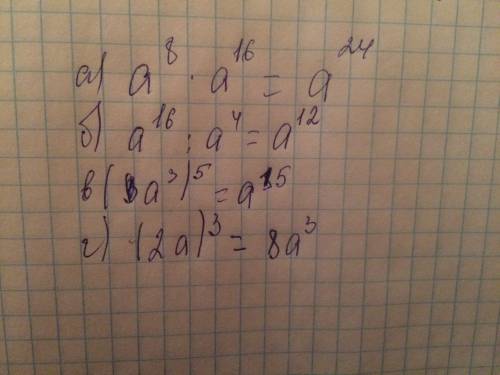 а) a⁸ · a¹⁶ = a²⁴
б) a¹⁶ : a⁴ = a¹²
в) (a³)⁵ = a¹⁵
г) (2a)³ = 8a³